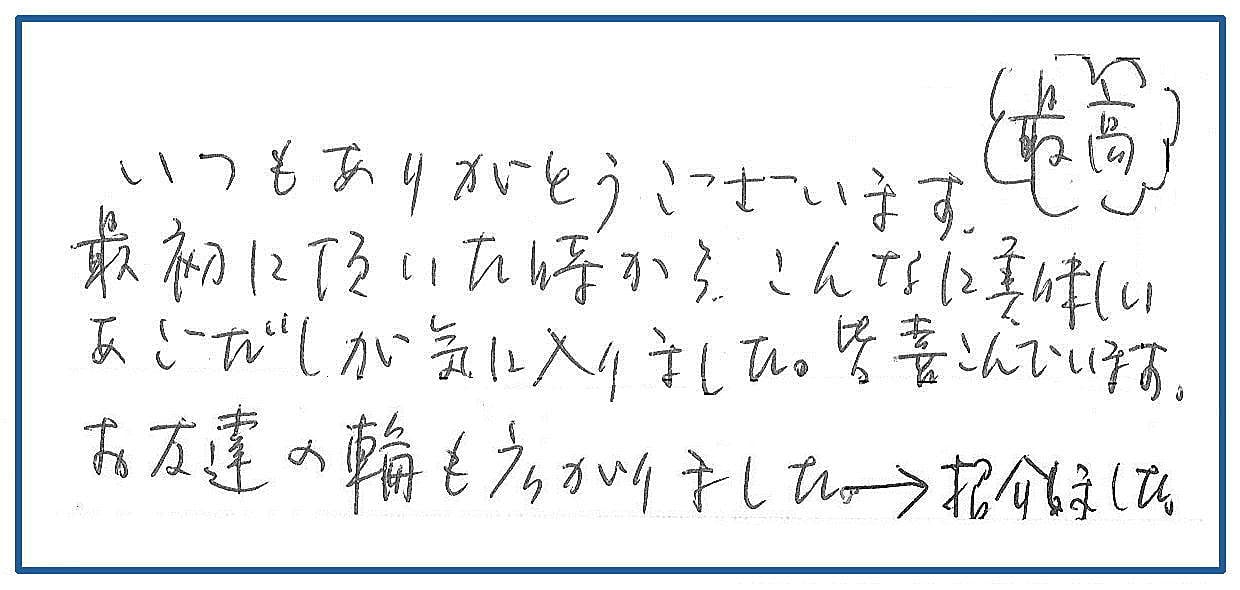 最高
いつもありがとうございます。
最初に頂いた時から、こんなに美味しい
あごだしが気に入りました。皆喜こんでいます。
お友達の輪も広がりました。→紹介しました。